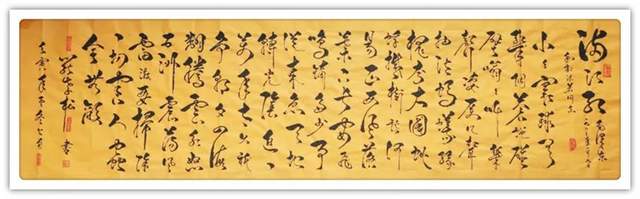 满江红 毛泽东
和郭沫若同志
小小寰球有
几个苍蝇碰
壁嗡嗡叫几
声凄厉几声
抽泣蚂蚁缘
槐夸大国蚍
蜉撼树谈何
易正西风落
叶下长安飞
鸣镝多少事
从来急天地
转光阴迫一
万年太久只
争朝夕四海
翻腾云水怒
五洲震荡风
雷激要扫除
一切害人虫
全无敌